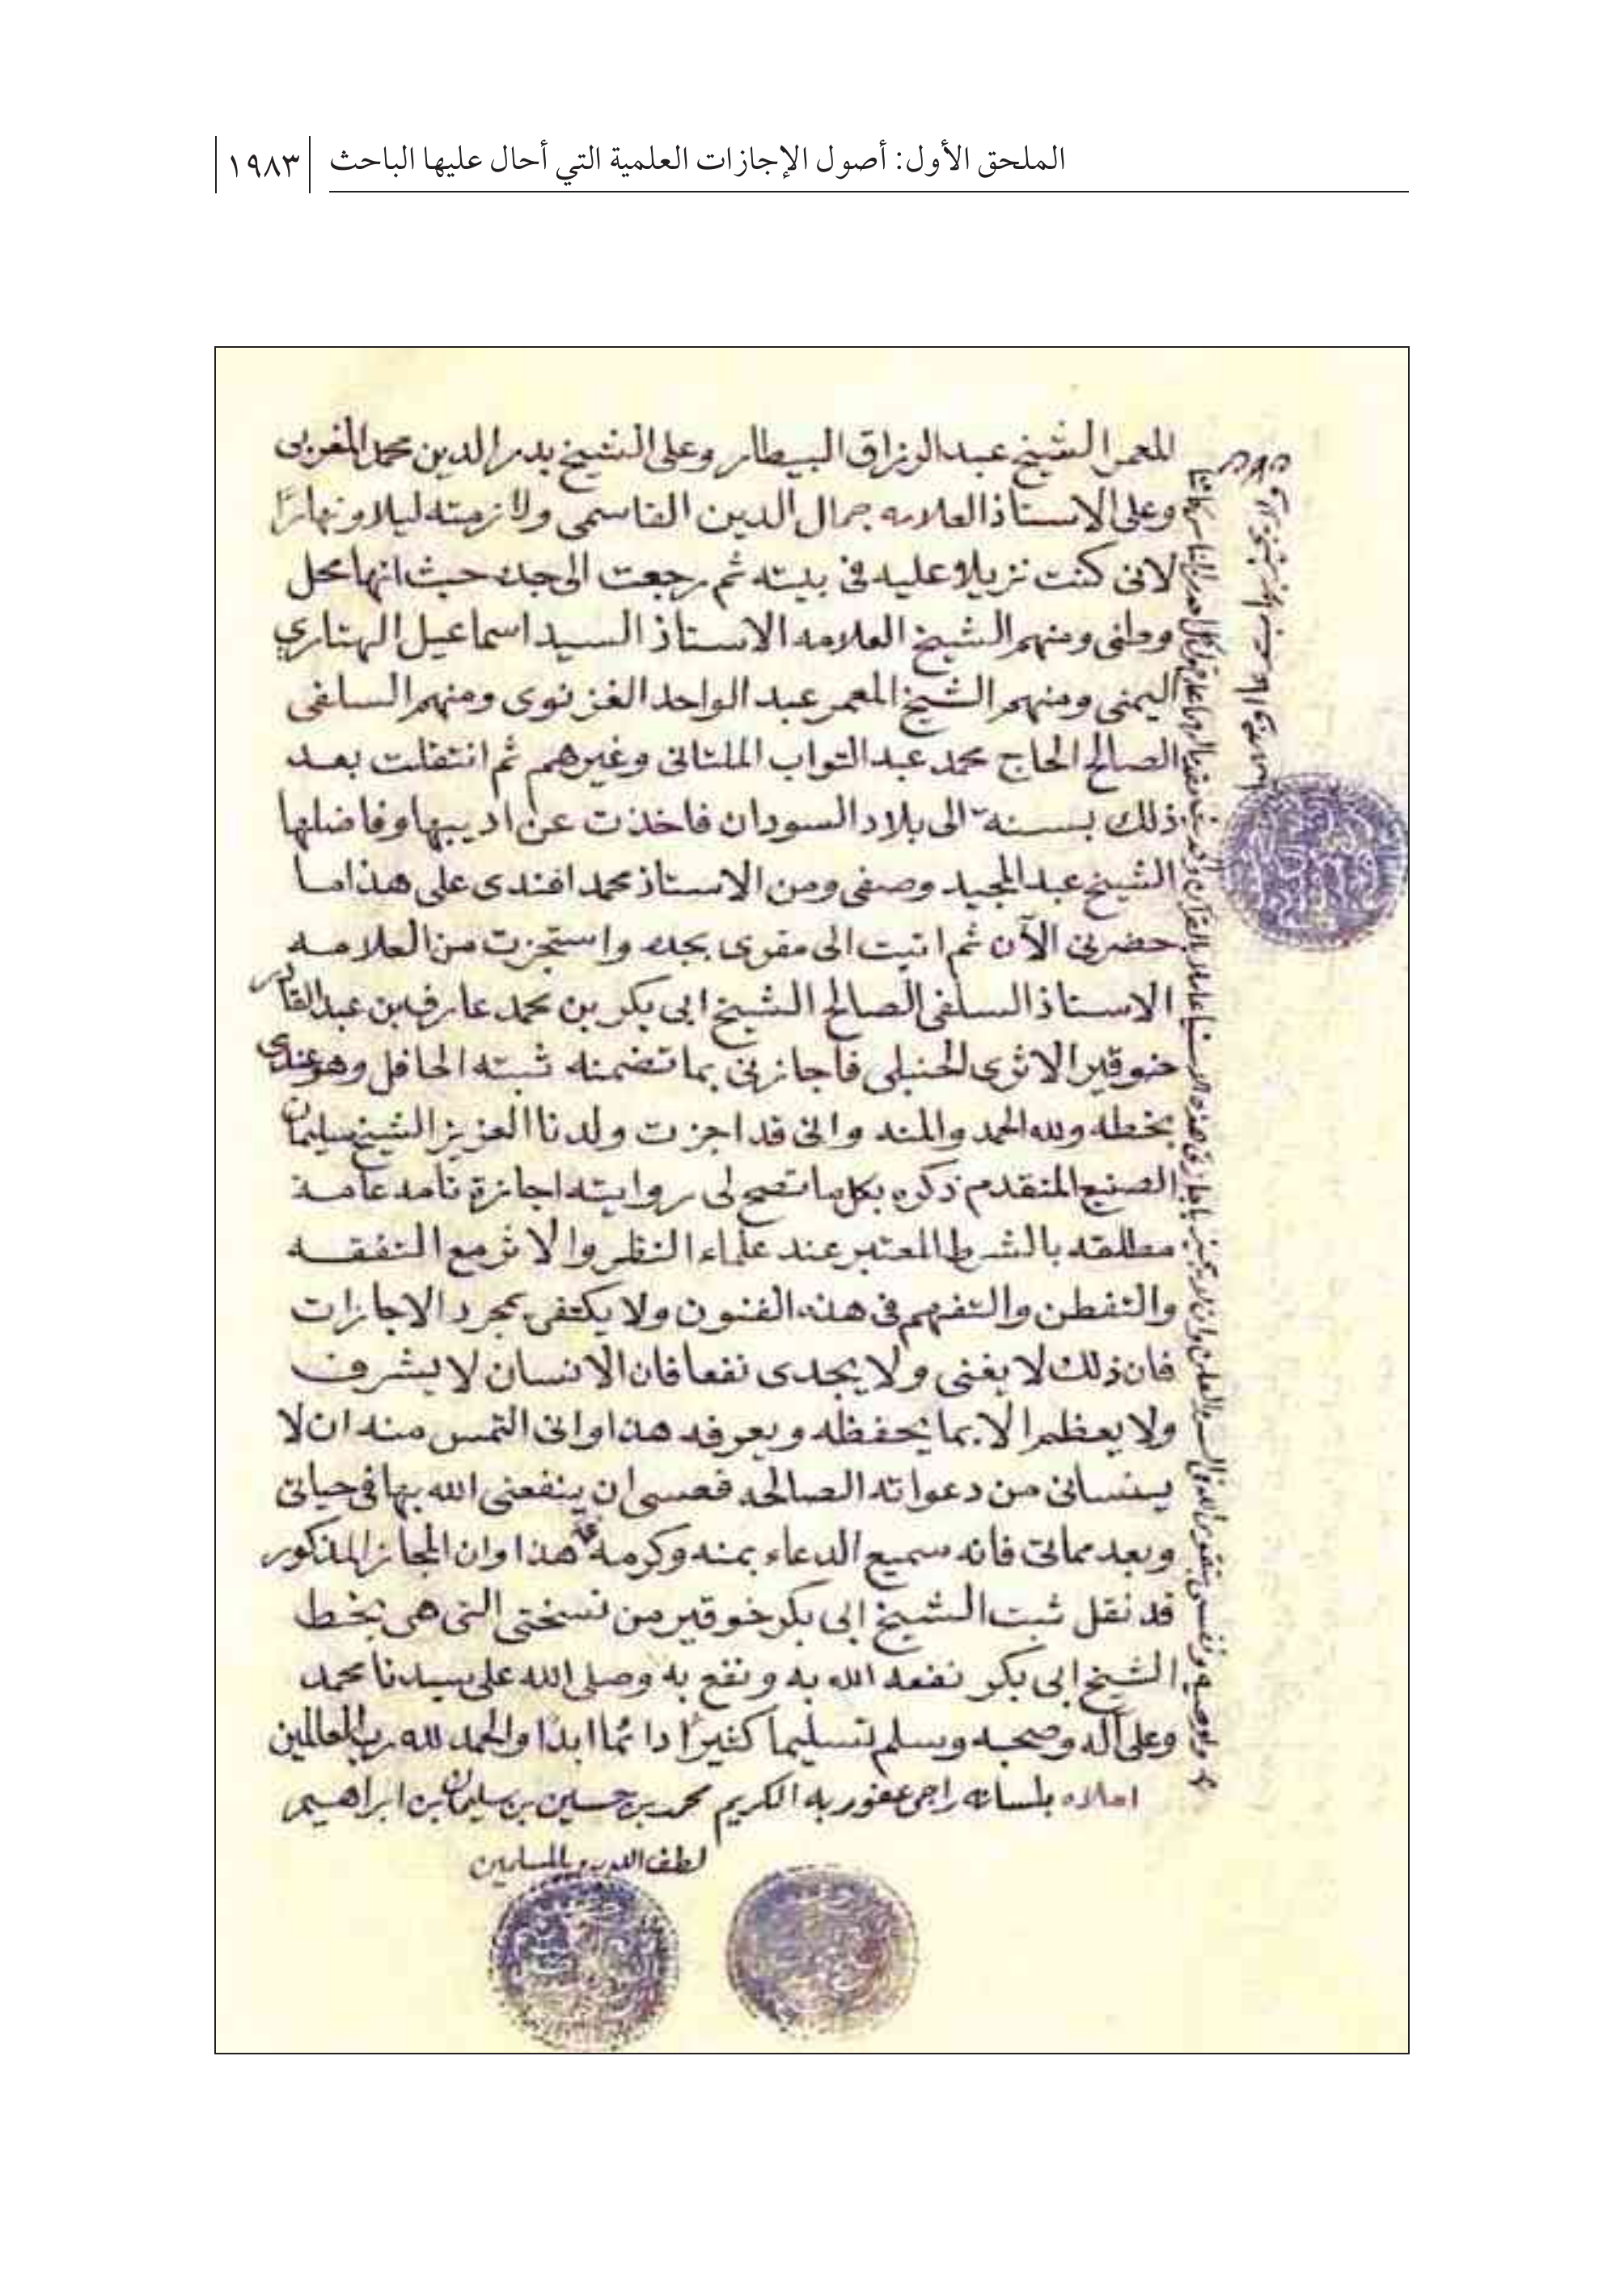 الملحق الأول: أصول الإجازات العلمية التي أحال عليها الباحث
١٩٨٣
المعمر الشيخ عبد الرزاق البيطار وعلى الشيخ بدر الدين محمد المغربى
وعلى الاستاذ العلامه جمال الدين القاسمى ولازمته ليلا ونهارًا
لانى كنت نزيلا عليه فى بيته ثم رجعت الى جده حيث انها محل
وطنى ومنهم الشيخ العلامه الاستاذ السيد اسماعيل الهتاري
اليمنى ومنهم الشيخ المعمر عبد الواحد الغزنوى ومنهم السلفى
الصالح الحاج محمد عبد التواب الملتانى وغيرهم ثم انتقلت بعد
ذلك بسنه الى بلاد السودان فاخذت عن اديبها وفاضلها
الشيخ عبد المجيد وصفى ومن الاستاذ محمد افندى على هذا ما
حضرنى الآن ثم اتيت الى مقرى بجده واستجزت من العلامه
الاستاذ السلفى الصالح الشيخ ابى بكر بن محمد عارف بن عبد القادر
خوقير الاثرى الحنبلى فاجازنى بما تضمنه ثبته الحافل وهو عندى
بخطه ولله الحمد والمنه وانى قد اجزت ولدنا العزيز الشيخ سليمان
الصنيع المتقدم ذكره بكل ما تصح لى روايته اجازة تامه عامة
مطلقه بالشرط المعتبر عند علماء النظر والاثر مع التفقه
والتفطن والتفهم فى هذه الفنون ولا يكتفى بمجرد الاجازات
فان ذلك لا يغنى ولا يجدى نفعا فان الانسان لا يشرف
ولا يعظم الا بما يحفظه ويعرفه هذا وانى التمس منه ان لا
ينسانى من دعواته الصالحه فعسى ان ينفعنى الله بها فى حياتى
وبعد مماتى فانه سميع الدعاء بمنه وكرمه هذا وان المجاز المذكور
قد نقل ثبت الشيخ ابى بكر خوقير من نسختى التى هى بخط
الشيخ ابى بكر نفعه الله به ونفع به وصلى الله على سيدنا محمد
وعلى آله وصحبه وسلم تسليما كثيرًا دائما ابدا والحمد لله رب العالمين
املاه بلسانه راجى عفو ربه الكريم محمد بن حسين بن سليمان بن ابراهيم
لطف الله به وبالمسلمين